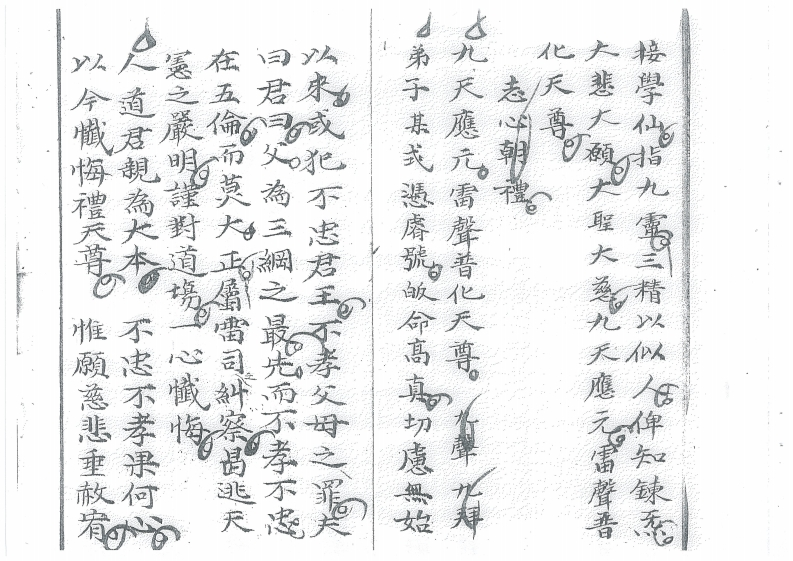 接學仙指九靈三精以似人俾知鍊炁
大悲大願大聖大慈九天應元雷聲普
化天尊
志心朝禮
九天應元雷聲普化天尊 九聲九拜
弟子某甙憑睿號皈命高真切慮無始
以來或犯不忠君王不孝父母之罪夫
曰君曰父為三綱之最先而不孝不忠
在五倫而莫大正屬雷司糾察曷逃天
憲之嚴明謹對道場一心懺悔
人道君親為大本 不忠不孝果何心
以今懺悔禮天尊 惟願慈悲垂赦宥